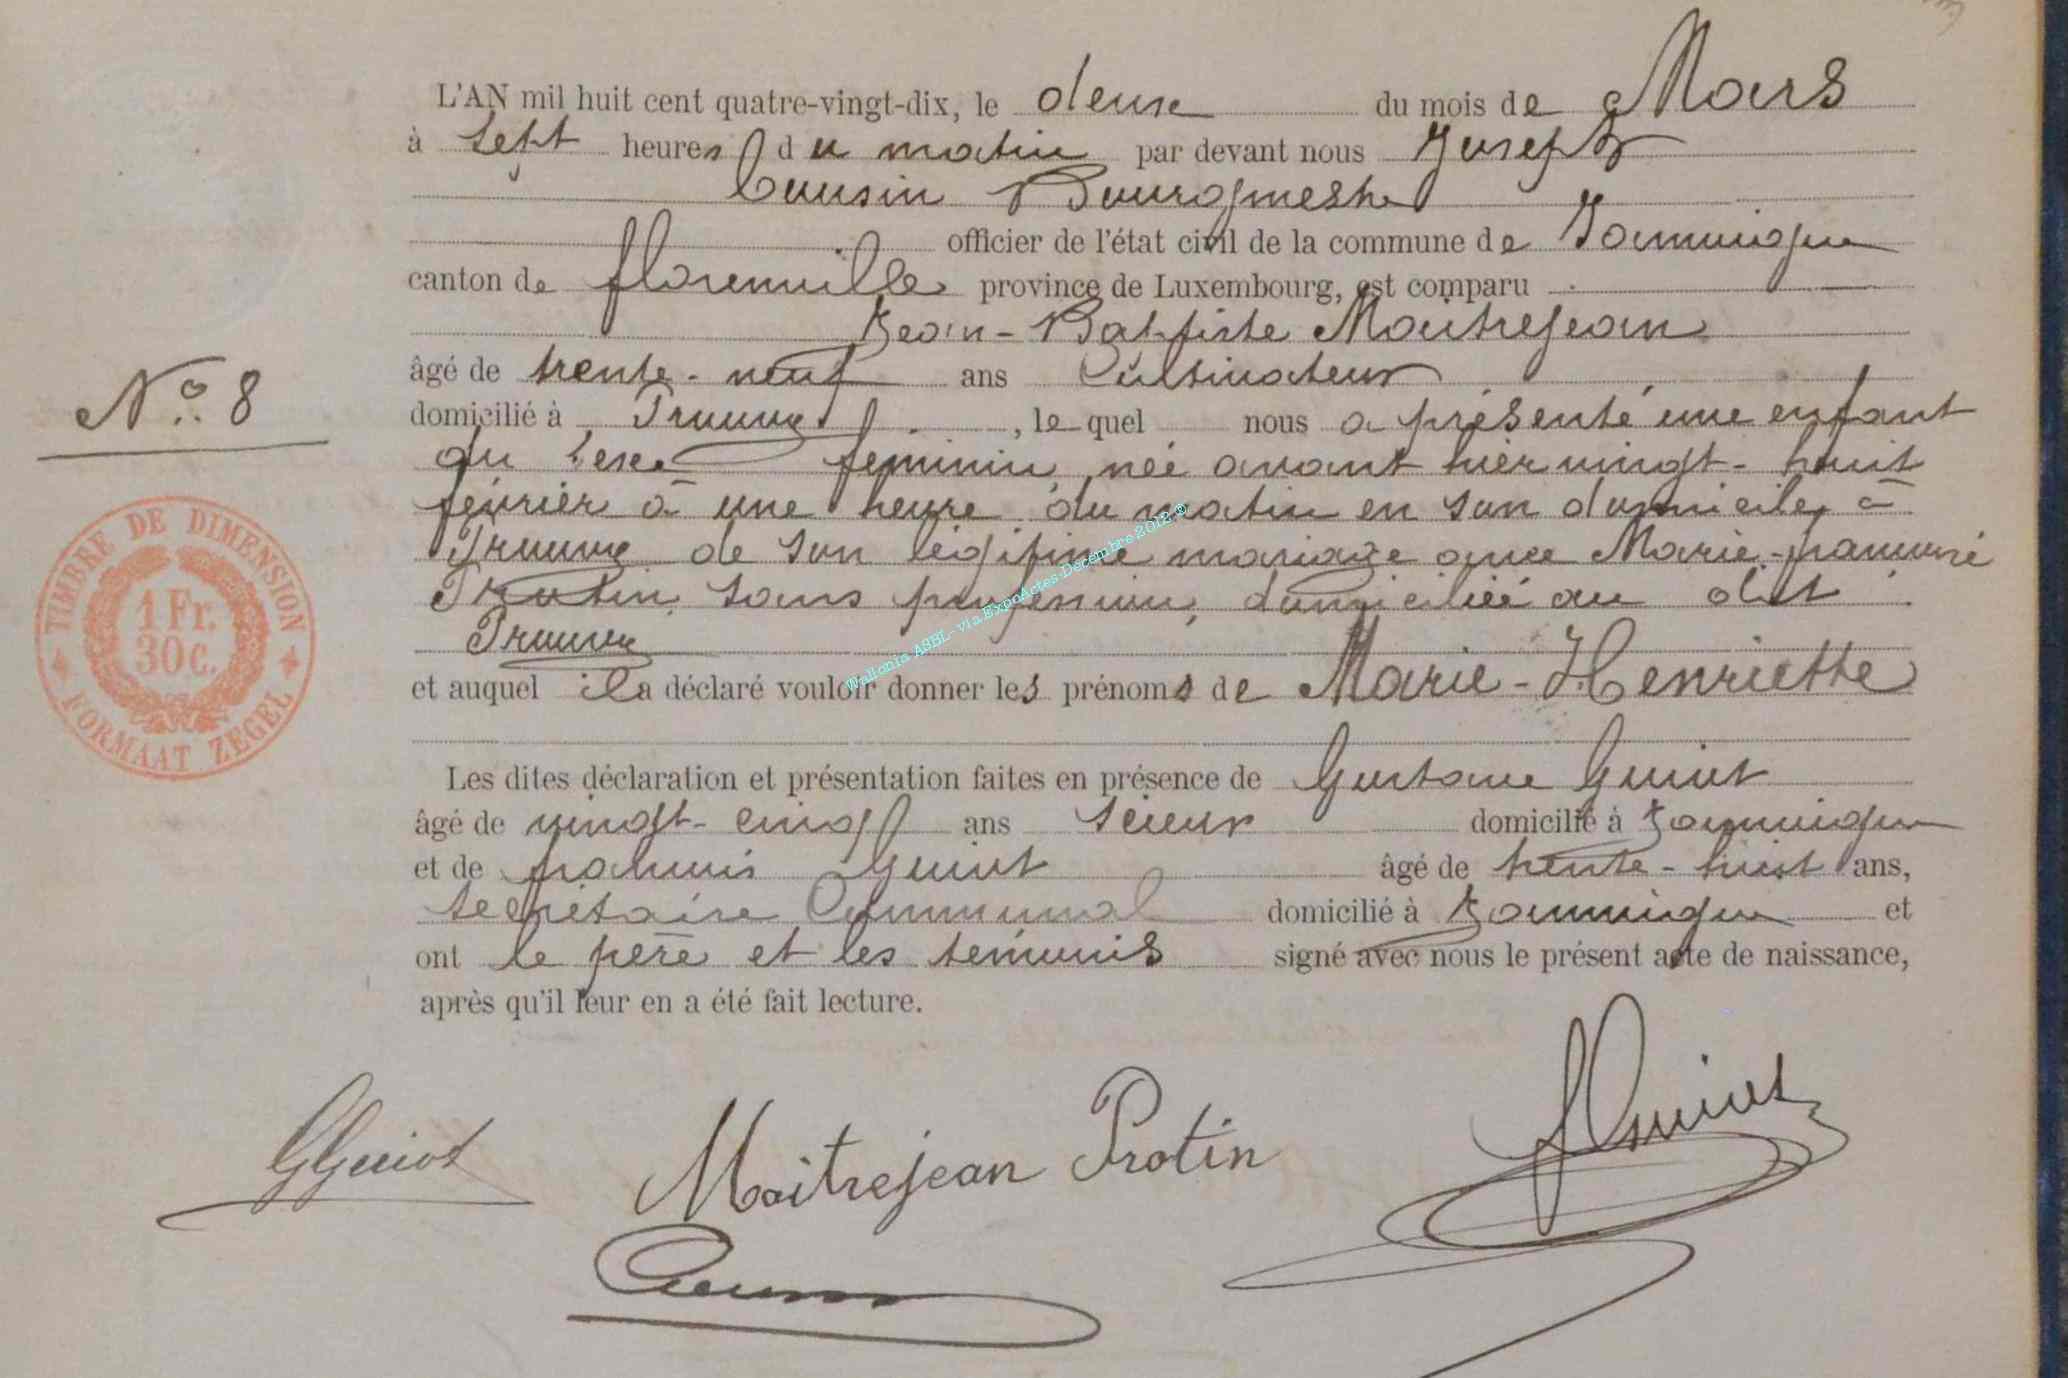 L'AN mil huit cent quatre-vingt-dix, le deux du mois de Mars
à sept heures du matin par devant nous Joseph
Cousin Bourgmestre
officier de l'état civil de la commune de Jamoigne
canton de florenville province de Luxembourg, est comparu
Jean-Baptiste Maitrejean
âgé de trente-neuf ans Cultivateur
domicilié à Prouvy, le quel nous a présenté une enfant
du sexe feminin, née avant hier vingt-huit
février à une heure du matin en son domicile, à
Prouvy de son légitime mariage avec Marie-
Protin, sans profession, domiciliée au dit
Prouvy
et auquel il a déclaré vouloir donner les prénoms de Marie-Henriette
Les dites déclaration et présentation faites en présence de Gustave Guiot
âgé de vingt-cinq ans scieur domicilié à Jamoigne
et de françois Guiot âgé de trente-huit ans,
secrétaire Communal domicilié à Jamoigne et
ont le père et les témoins signé avec nous le présent acte de naissance,
après qu'il leur en a été fait lecture.
N°. 8
TIMBRE DE DIMENSION
1 Fr.
30 c.
FORMAAT ZEGEL
Wallonia ASBL- via ExpoActes-Decembre 2012 ®
GGuiot
Maitrejean Protin
fGuiot
Cousin